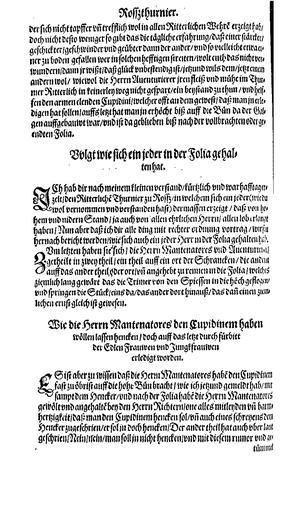 Roßthurnier.
der sich nicht tapffer vñ trefflich wol in allen Ritterlichen Wehrẽ erzeigt hab/
doch nicht desto weniger so gibt das die tägliche erfarung/ daß einer stärcker/
geschickter/ geschwinder vnd geübter dann der ander/ vnd so vielleicht etwan ei-
ner zu boden gefallen wer in solchen hefftigen streiten/ wolt euch das nicht ver-
wundern/ dann jr wißt/ daß glück vnbestendig ist/ jetzund wils dem/ jetzt einem
andern wol/
mer Ritterlich in keinerley weg nicht gespart/ ein beystand zu thun/ vnd helf-
fen den armen elenden Cupidini/ welcher offt an dem gewest/ daß man jn erle-
digt hat sollen/ auffs letzt hat man jn erhöcht biß auff die Bün da der Gal-
gen auffgebauwt war/ vnd ist da geblieben biß nach der vollbrachten oder ge-
endten Folia.
Volgt wie sich ein jeder in der Folia gehal-
ten hat.
Ich hab dir nach meinem kleinen verstand/ kürtzlich vnd warhafftig er-
zelt/ den Ritterlichẽ Thurnier zu Roß/ in welchem sich ein jeder/ wie du
wol vernommen vnd verstanden hast/ dermassen erzeigt/ daß von ho-
hem vnd nidern Stand/ ja auch von allen ehrlichen Herrn/ allen lob erlangt
haben/ Nun aber daß ich dir alle ding mit rechter ordnung vortrag/ wil ich
hernach bericht werden/ wie sich auch ein jeder Herr in der Folia gehalten hab.
Zum letzten haben sie sich/ die Herrn Mantenatores vnd Auenturieri
getheilt in zwey theil/ ein theil auff ein ort der Schrancken/ die andern
auff das ander theil oder ort/ vñ angehebt zu rennen die Folia/ welches
ziemlich lang gewärt das die Trümer von den Spiessen in die höch geflogen/
vnd springen die Stück/ eins da/ das ander dort hinauß/ das dañ einem zim-
lichen ernst gleich ist gewesen.
Wie die Herrn Mantenatores den Cupidinem haben
wöllen lassen hencken/ doch auff das letzt durch fürbitt
der Edlen Frauwen vnd Jungfrauwen
erledigt worden.
Es ist aber zu wissen/ daß die Herrn Mantenatores habẽ den Cupidinem
fast zu öberst auff die hohe Bün bracht/ wie ich jetzund gemeldt hab/ mit
sampt dem Hencker/ vnd nach der Folia habẽ die Herrn Mantenatores
gewölt vnd angehaltẽ bey den Herrn Richtern one alles mitleyden vñ barm-
hertzigkeit/ daß man den Cupidinem hencken sol/ vñ auch eines schreyens dem
Hencker zugeschrien/ er sol jn doch hencken/ Der ander theil hat auch vber laut
geschrien/ Nein/ nein/ man soll jn nicht hencken/ vnd mit diesem rumor vnd ge-
tümmel